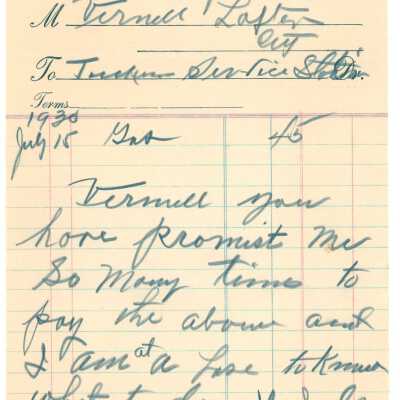 M Vernell Lofter
City
To Tuckers Service Sta. Dr.
Terms
1930
July 15 Gas 45
Vernell you
have promist me
so many times to
pay the above and
I am at a lose to know
what to do